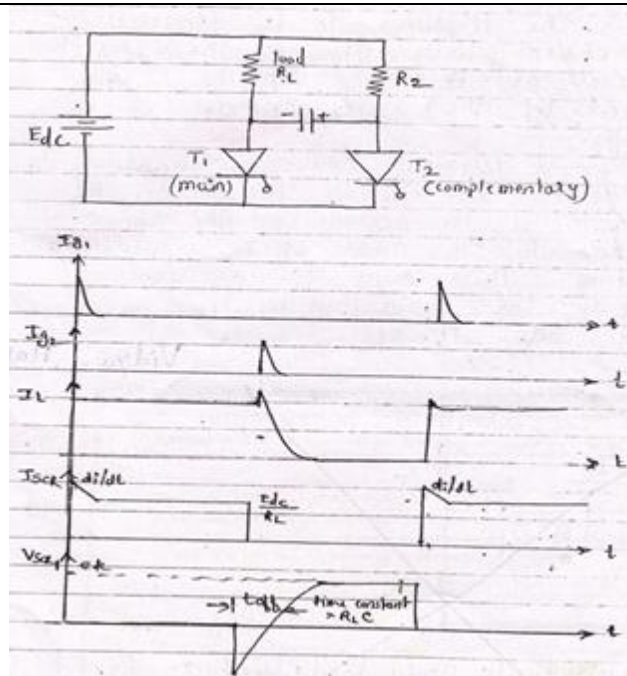 load
RL
R2
- +
Edc
T1
(main)
T2
(complementary)
Ig1
t
Ig2
t
IL
t
ISCR di/dt
Edc
RL
di/dt
t
VSCR1
toff
time constant
= RLC
t